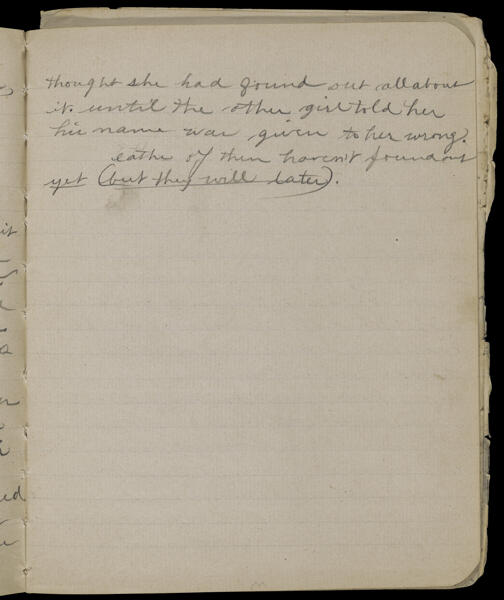 thought she had found out all about
it. until the other girl told her
his name was given to her wrong.
eathe of them haven't found out
yet (but they will later).